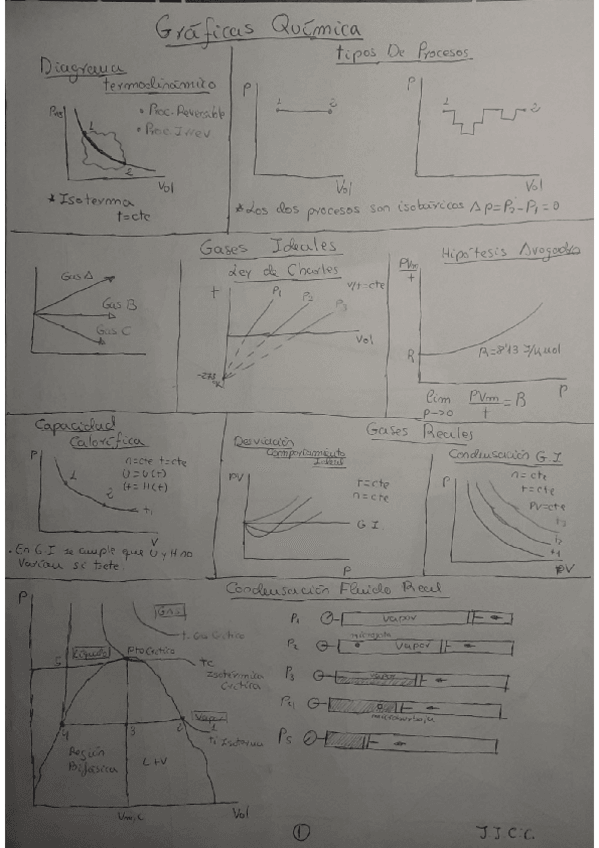 Gráficas Química
Diagrama
termodinámico
Pres
• Proc. Reversible
• Proc. Irrev
1
2
Vol
* Isoterma
t=cte
tipos De Procesos
P
1
2
Vol
P
1
2
Vol
* Los dos procesos son isobáricos Δp=P2-P1=0
Gas A
Gas B
Gas C
Gases Ideales
Ley de Charles
V/t=cte
t
P1
P2
P3
Vol
Hipótesis Avogadro
PVm
t
R
P
lim PVm
p→0 t
Capacidad
Calorífica
P
n=cte t=cte
U=U(t)
H=H(t)
1
2
t1
V
• En G.I se cumple que U y H no
Varian si t=cte.
Gases Reales
Desviación
Comportamiento
Ideal
PV
t=cte
n=cte
G.I.
P
Condensación G.I
P
n=cte
t=cte
PV=cte
t3
t2
t1
PV
Condensación Fluido Real
P
Gas
t. Gas Crítico
Líquido
Pto Crítico
tc
Isotérmica
Crítica
5
4
3
2
Vapor
1
t1 Isoterma
Región
Bifásica
L+V
Vm,c
Vol
P1
vapor
P2
microgota
vapor
P3
vapor
P4
microburbuja
P5
1
J.J.C.C.